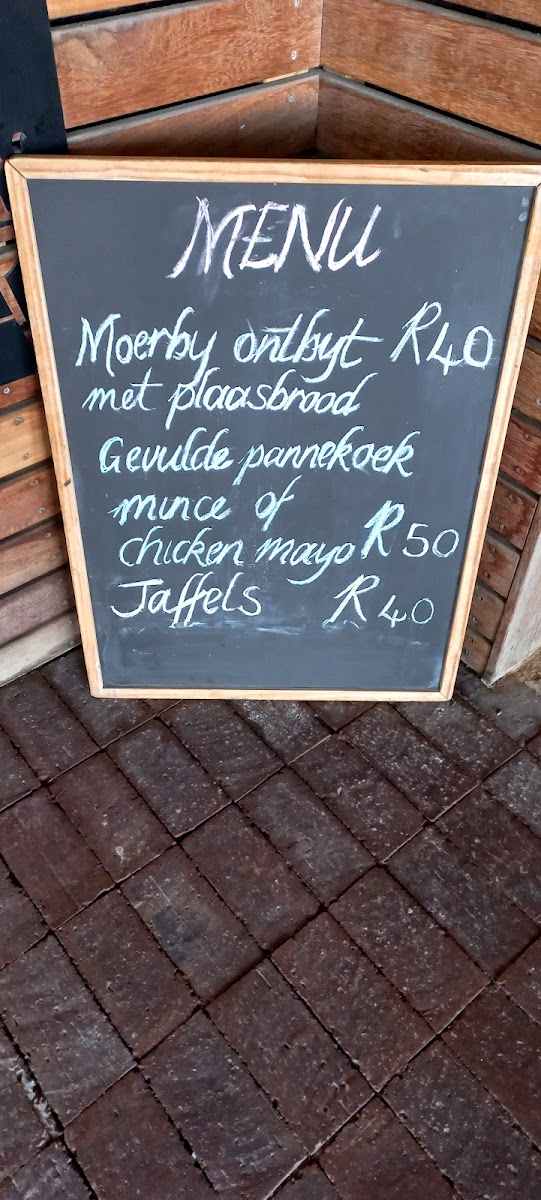 MENU
Moerby ontbyt R40
met plaasbrood
Gevulde pannekoek
mince of
chicken mayo R50
Jaffels R40